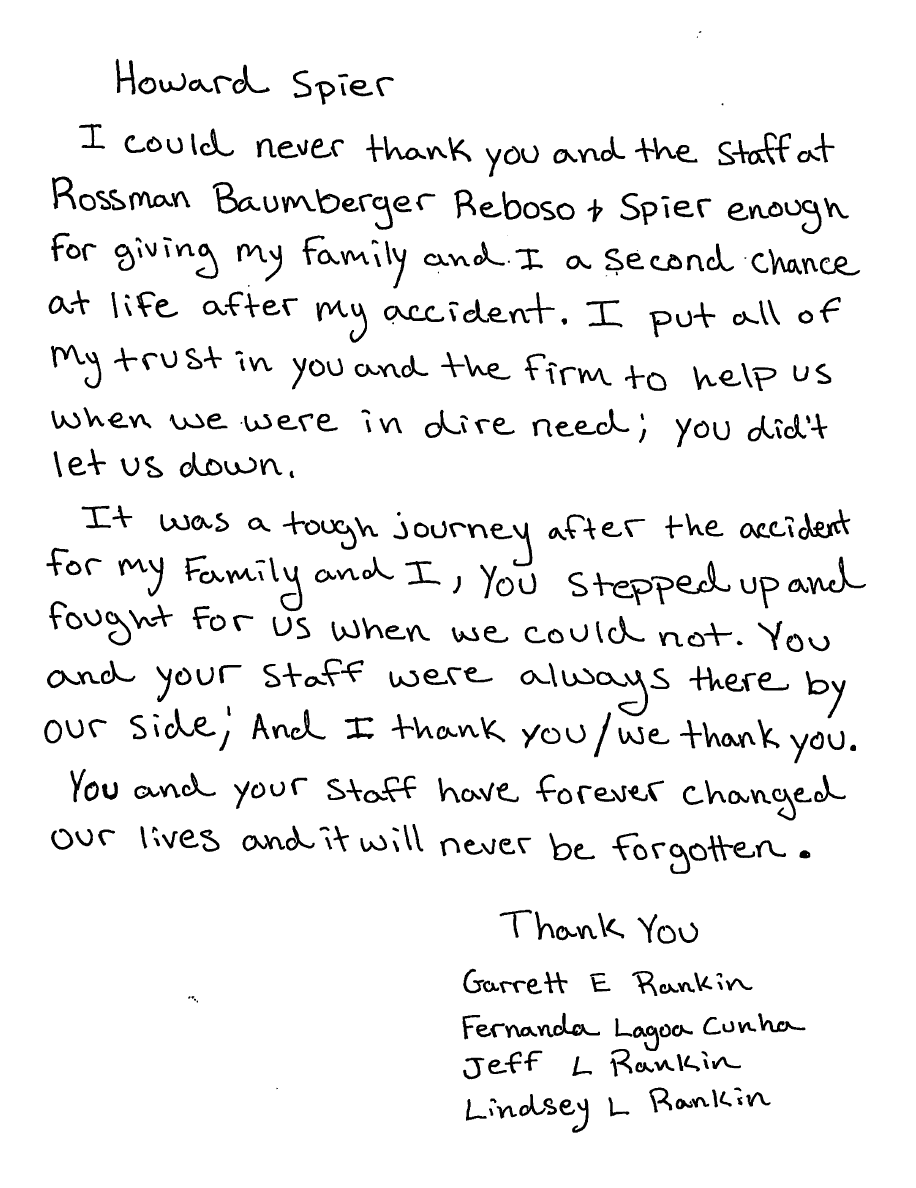 Howard Spier
I could never thank you and the staff at
Rossman Baumberger Reboso & Spier enough
for giving my family and I a second chance
at life after my accident. I put all of
my trust in you and the firm to help us
when we were in dire need; you did't
let us down.
It was a tough journey after the accident
for my Family and I, You stepped up and
fought for us when we could not. You
and your staff were always there by
our side; And I thank you/we thank you.
You and your staff have forever changed
our lives and it will never be forgotten.
Thank You
Garrett E Rankin
Fernanda Lagoa Cunha
Jeff L Rankin
Lindsey L Rankin